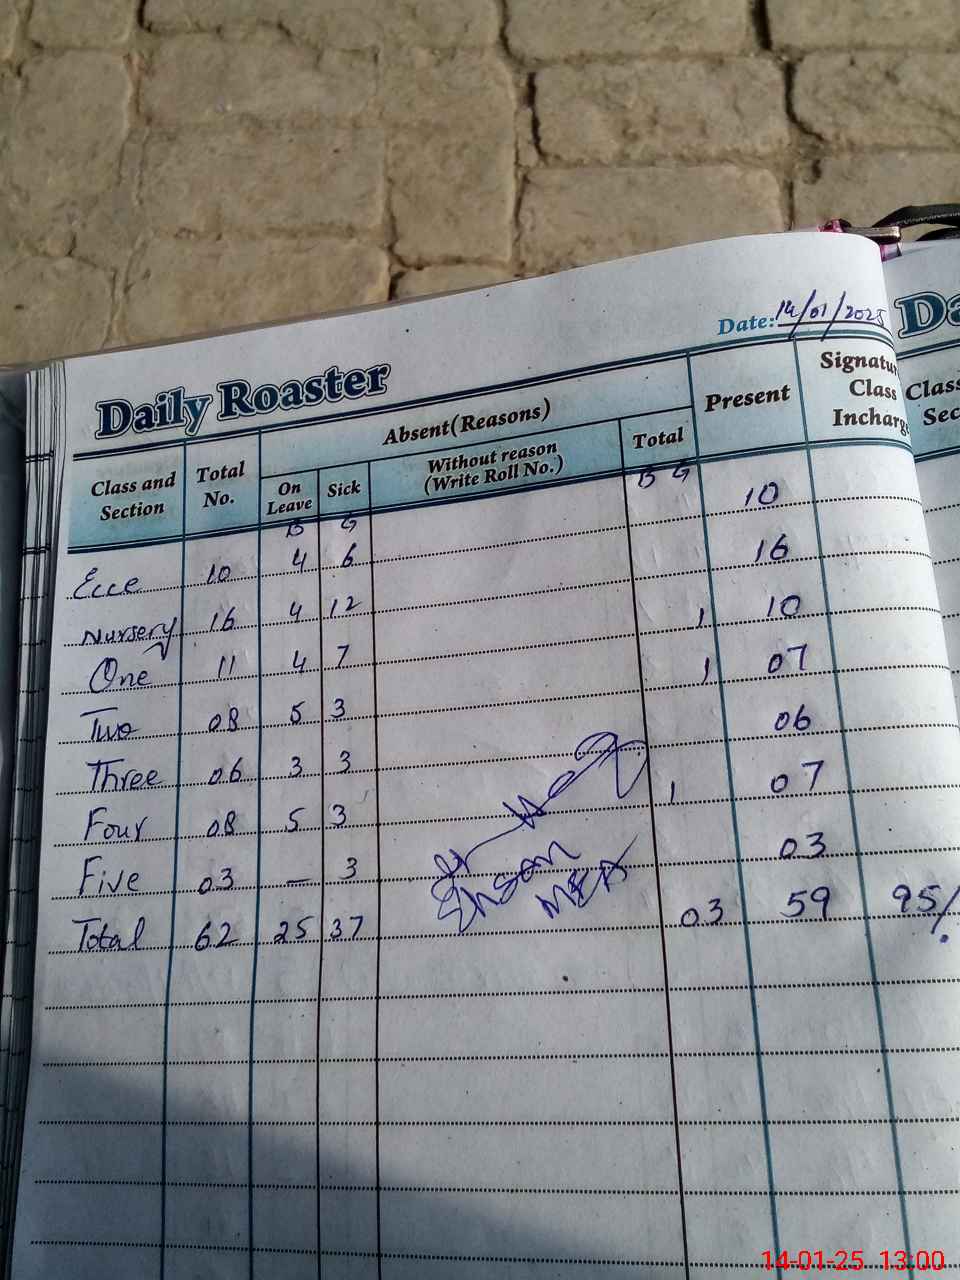 Date: 14/01/2025
Daily Roaster
Class and Section Total No. Absent(Reasons) Present Signatu Class Incharg
On Leave Sick Without reason (Write Roll No.) Total
B G B G
Ecce 10 4 6 10
Nursery 16 4 12 16
One 11 4 7 1 10
Two 08 5 3 1 07
Three 06 3 3 06
Four 08 5 3 1 07
Five 03 — 3 03
Total 62 25 37 03 59 95%
Ehsan
MEA
Da
Class
Sec
14-01-25 13:00